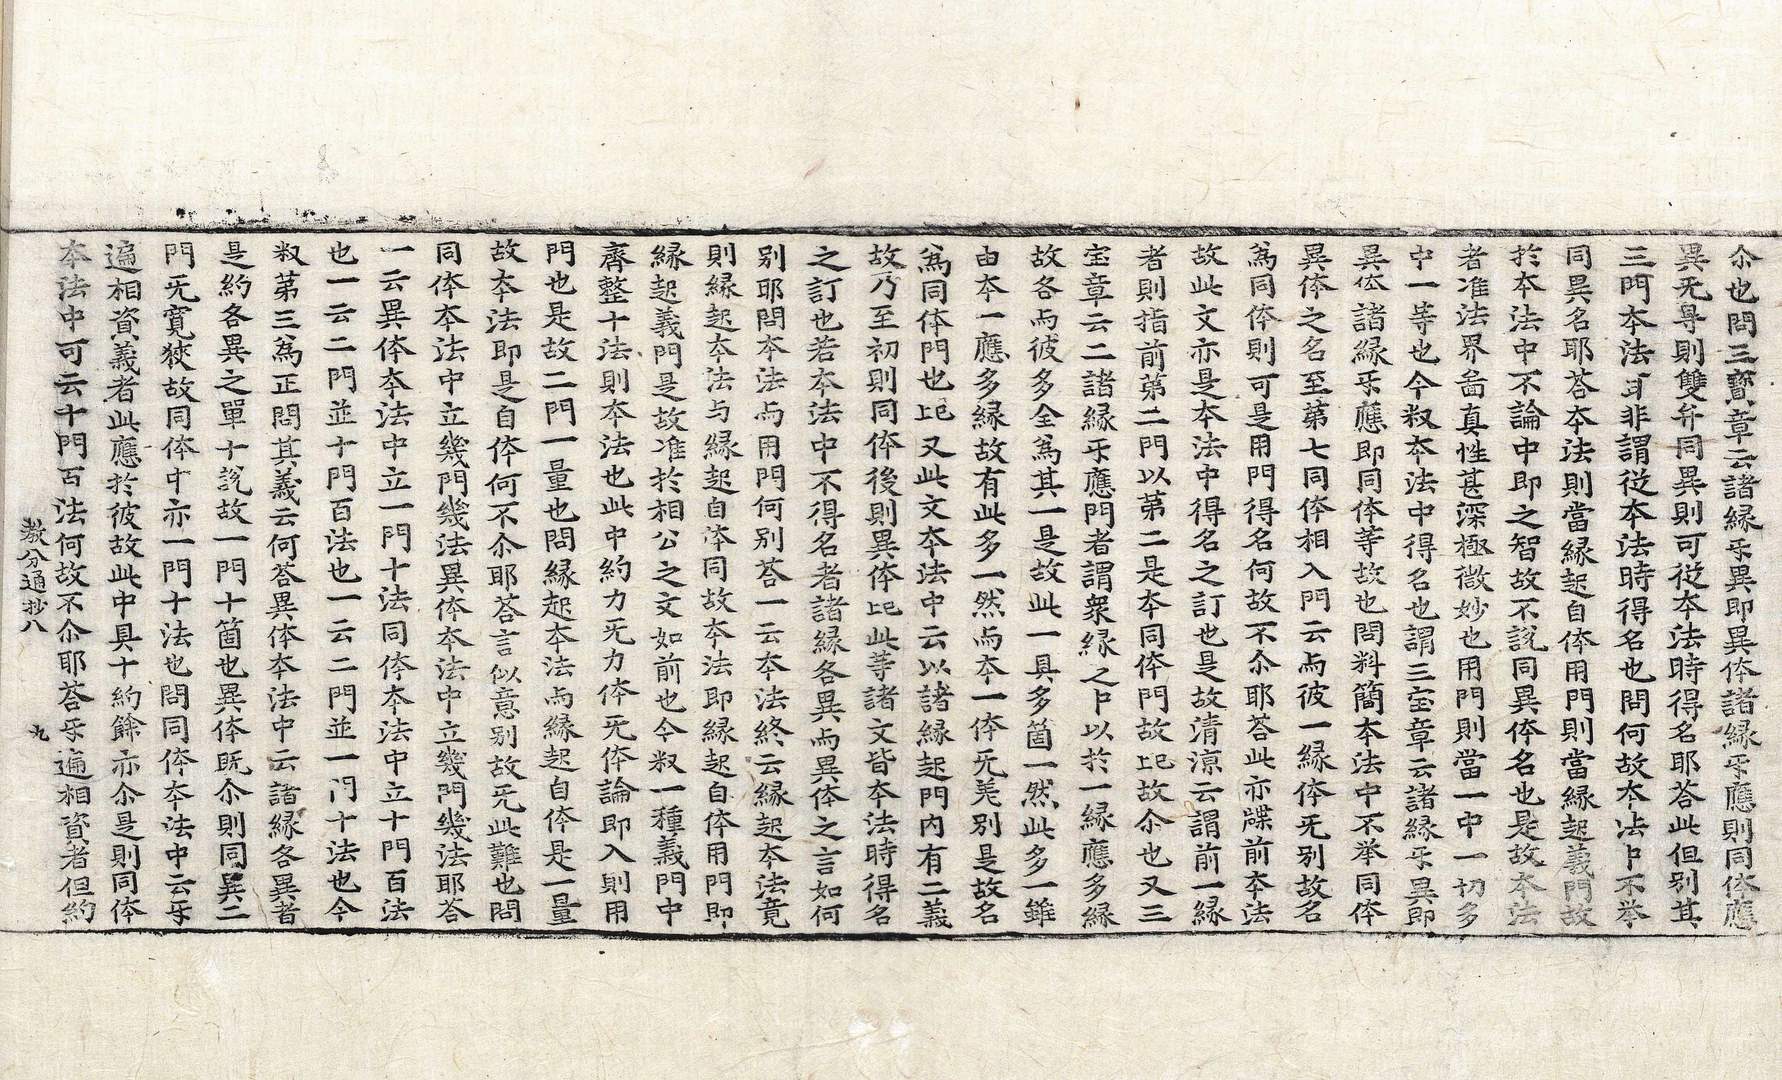 尒也問三寶章云諸縁𠄔異即異体諸縁𠄔應則同体應
異无㝵則雙弁同異則可從本法時得名耶荅此但別其
三門本法耳非謂從本法時得名也問何故本法卩不举
同異名耶荅本法則當縁起自体用門則當縁起義門故
於本法中不論中即之智故不說同異体名也是故本法
者准法界啚真性甚深極微妙也用門則當一中一切多
中一等也今釈本法中得名也謂三宝章云諸縁𠄔異即
異体諸縁𠄔應即同体等故也問料簡本法中不举同体
異体之名至第七同体相入門云与彼一縁体无别故名
為同体則可是用門得名何故不尒耶荅此亦牒前本法
故此文亦是本法中得名之訂也是故清涼云謂前一縁
者則指前第二門以第二是本同体門故㠯故尒也又三
宝章云二諸縁𠄔應門者謂衆縁之卩以於一縁應多縁
故各与彼多全為其一是故此一具多箇一然此多一雖
由本一應多縁故有此多一然与本一体无羌別是故名
為同体門也㠯又此文本法中云以諸縁起門内有二義
故乃至初則同体後則異体㠯此等諸文皆本法時得名
之訂也若本法中不得名者諸縁各異而異体之言如何
別耶問本法与用門何别荅一云本法終云縁起本法竟
則縁起本法与縁起自体同故本法即縁起自体用門即
縁起義門是故准於相公之文如前也今釈一種義門中
齊整十法則本法也此中約力无力体无体論即入則用
門也是故二門一量也問縁起本法与縁起自体是一量
故本法即是自体何不尒耶荅言似意别故无此難也問
同体本法中立幾門幾法異体本法中立幾門幾法耶荅
一云異体本法中立一門十法同体本法中立十門百法
也一云二門並十門百法也一云二門並一门十法也今
釈第三為正問其義云何荅異体本法中云諸縁各異者
是約各異之單十說故一門十箇也異体既尒則同異二
門无寬狹故同体中亦一門十法也問同体本法中云𠄔
遍相資義者此應於彼故此中具十約餘亦尒是則同体
本法中可云十門百法何故不尒耶荅𠄔遍相資者但約
教分通抄八
九